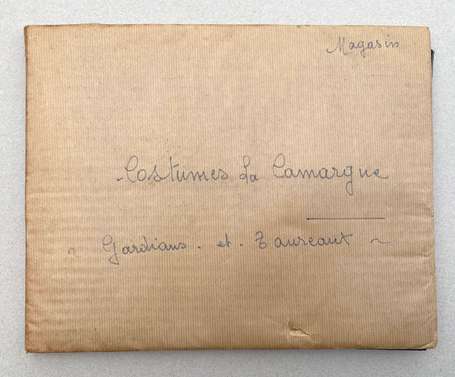 Magasin
Costumes La Camargue
~ Gardians. et. Taureaux ~